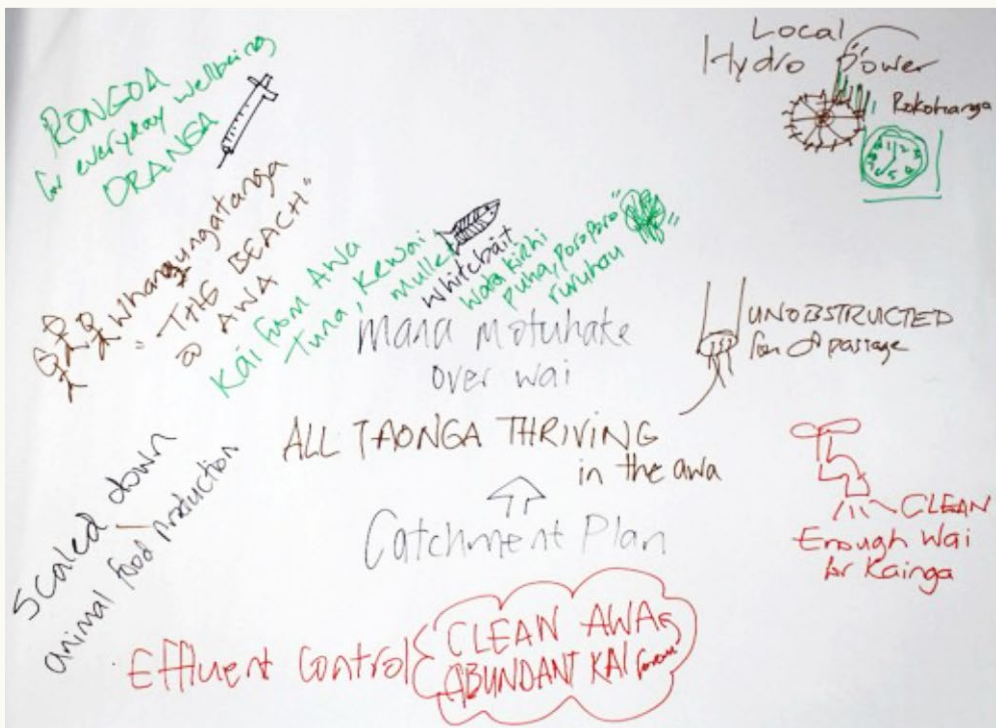 RONGOA
for everyday wellbeing
ORANGA
Local
Hydro Power
Rokohanga
Whanaungatanga
"THE BEACH"
@ AWA
Kai from Awa
Tuna, Kewai
mullet
Whitebait
Wata kirihi
puha, poroporo
ruruhau
mana motuhake
over wai
UNOBSTRUCTED
passage
ALL TAONGA THRIVING
in the awa
Catchment Plan
Scaled down
animal food production
CLEAN
Enough Wai
for Kainga
Effluent Control
CLEAN AWA
ABUNDANT KAI